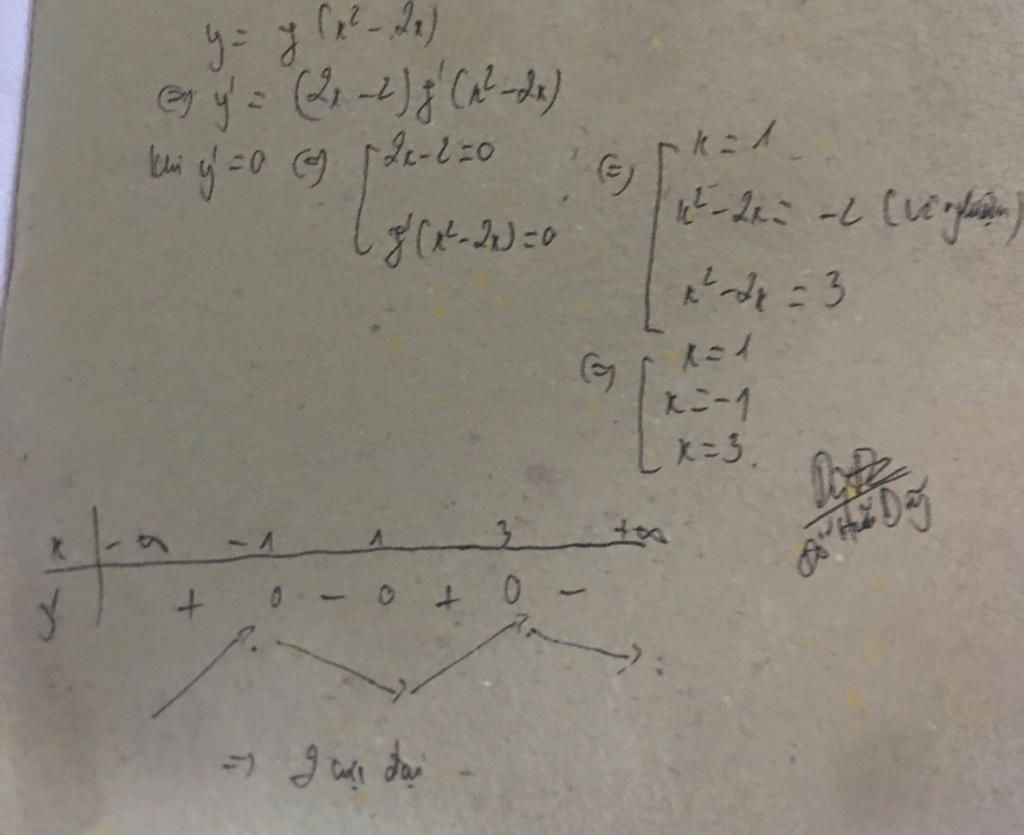 y = g(x² - 2x)
⇔ y' = (2x - 2) g'(x² - 2x)
khi y' = 0 ⇔ [ 2x - 2 = 0
g'(x² - 2x) = 0
⇔ [ x = 1
x² - 2x = -2 (vô nghiệm)
x² - 2x = 3
⇔ [ x = 1
x = -1
x = 3.
x | -∞ -1 1 3 +∞
y' | + 0 - 0 + 0 -
⇒ 2 cực đại